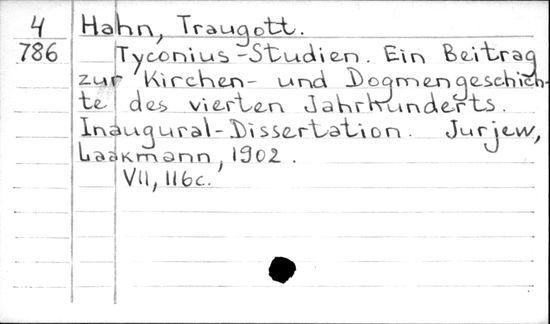 4 Hahn, Traugott.
786 Tyconius-Studien. Ein Beitrag
zur Kirchen- und Dogmengeschich-
te des vierten Jahrhunderts.
Inaugural-Dissertation. Jurjew,
Laakmann, 1902.
VII, 116c.